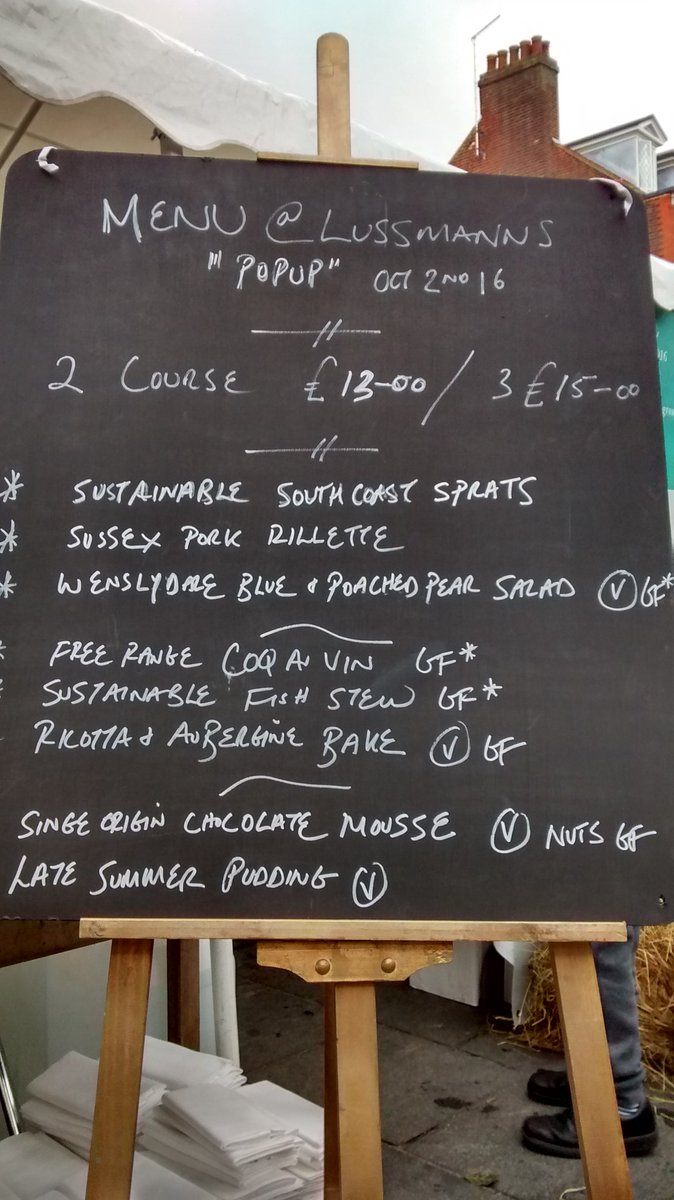 MENU @ LUSSMANNS
"'POPUP" OCT 2ND 16
2 COURSE £13-00 / 3 £15-00
* SUSTAINABLE SOUTH COAST SPRATS
* SUSSEX PORK RILLETTE
* WENSLYDALE BLUE & POACHED PEAR SALAD V GF*
* FREE RANGE COQ AU VIN GF*
* SUSTAINABLE FISH STEW GF*
- RICOTTA & AUBERGINE BAKE V GF
SINGE ORIGIN CHOCOLATE MOUSSE V NUTS GF
LATE SUMMER PUDDING V